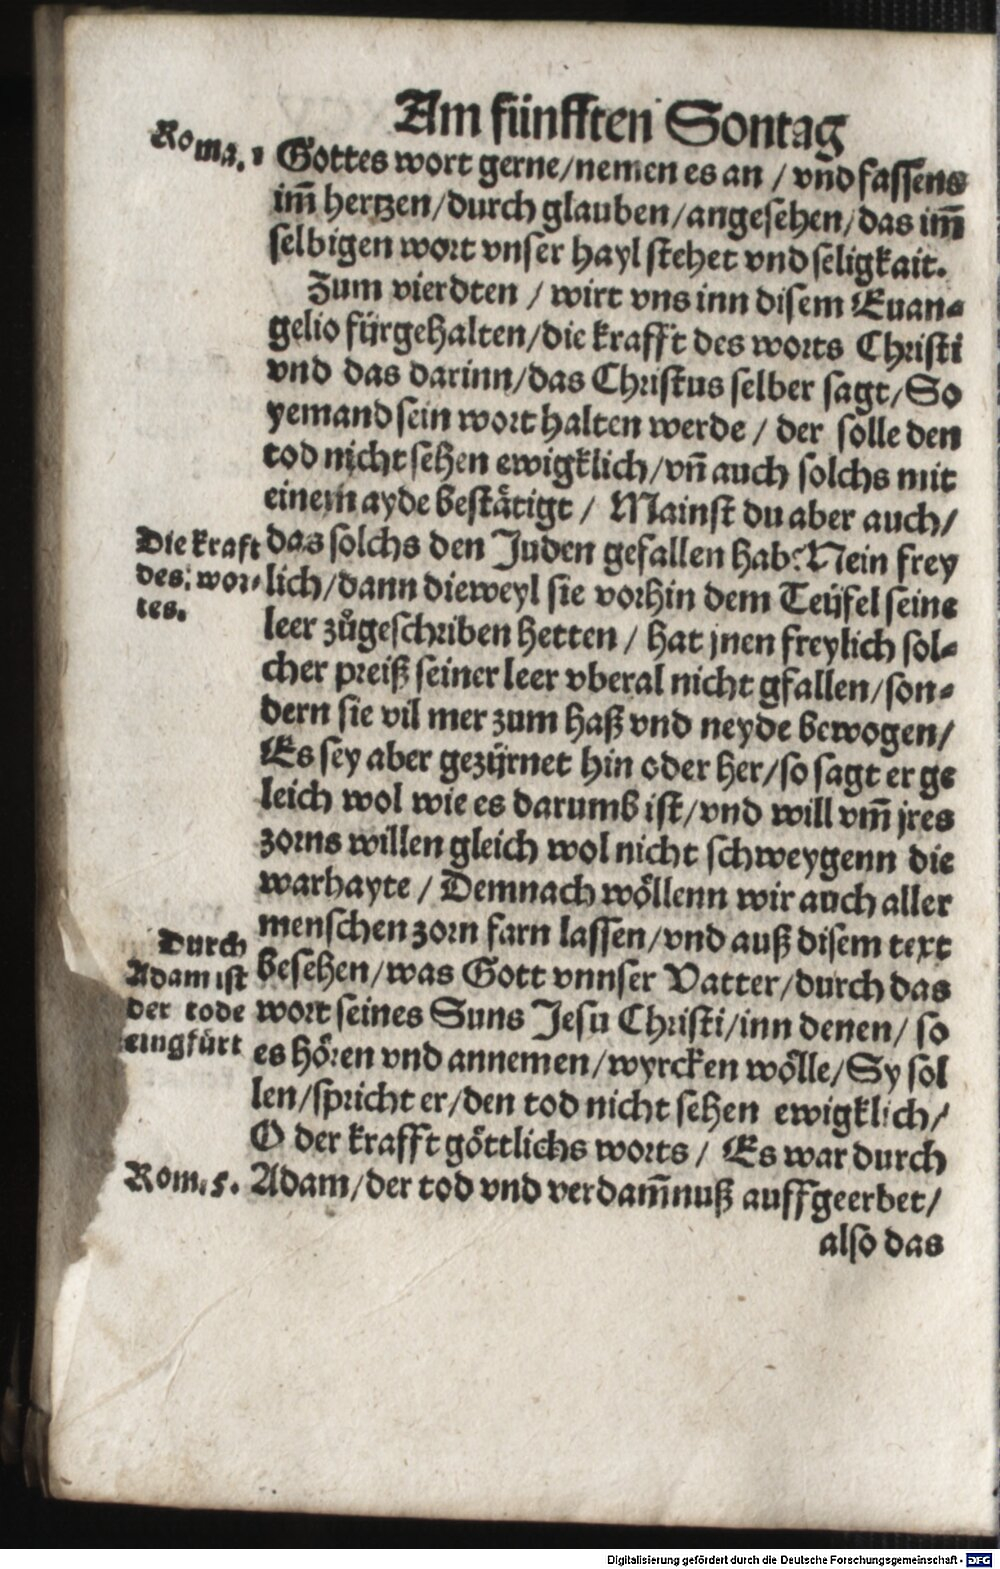 Am fünfften Sontag
Roma. 1
Gottes wort gerne/nemen es an / vnd fassens
im̃ hertzen/durch glauben/angesehen/das im̃
selbigen wort vnser hayl stehet vnd seligkait.
Zum vierdten / wirt vns inn disem Euan-
gelio fürgehalten/die krafft des worts Christi
vnd das darinn/das Christus selber sagt/So
yemand sein wort halten werde / der solle den
tod nicht sehen ewigklich/vñ auch solchs mit
einem ayde bestätigt / Mainst du aber auch/
Die kraft
des wor-
tes.
das solchs den Juden gefallen hab? Nein frey
lich/dann dieweyl sie vorhin dem Teüfel seine
leer zůgeschriben hetten / hat jnen freylich sol-
cher preiß seiner leer vberal nicht gfallen/son-
dern sie vil mer zum haß vnd neyde bewogen/
Es sey aber gezürnet hin oder her/so sagt er ge
leich wol wie es darumb ist/vnd will vm̃ jres
zorns willen gleich wol nicht schweygenn die
warhayte / Demnach wöllenn wir auch aller
menschen zorn farn lassen/vnd auß disem text
Durch
Adam ist
der tode
eingfürt
besehen/was Gott vnnser Vatter/durch das
wort seines Suns Jesu Christi/inn denen/ so
es hören vnd annemen/wyrcken wölle/Sy sol
len/spricht er/den tod nicht sehen ewigklich/
O der krafft göttlichs worts / Es war durch
Rom. 5.
Adam/der tod vnd verdam̃nuß auffgeerbet/
also das
Digitalisierung gefördert durch die Deutsche Forschungsgemeinschaft - DFG